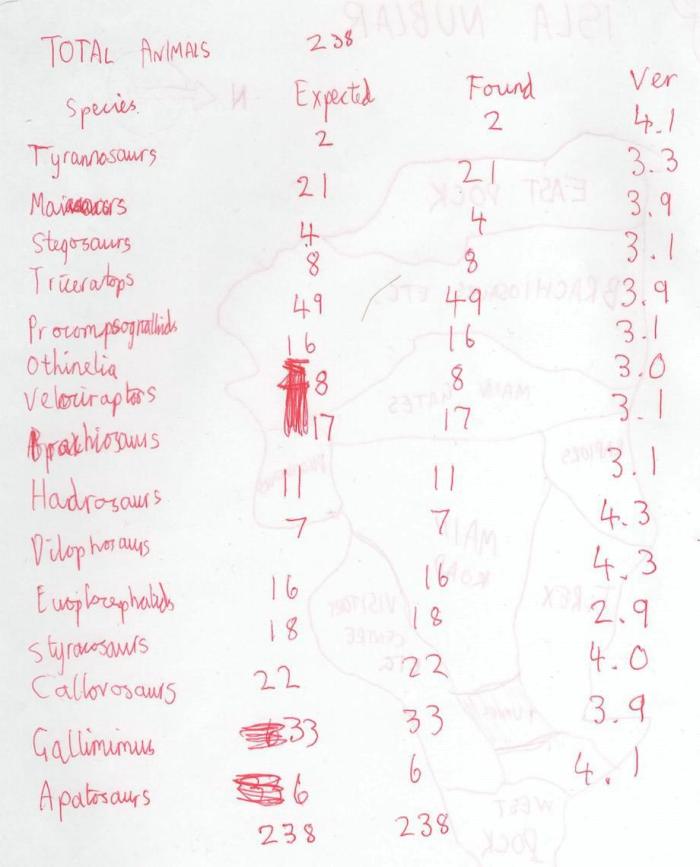 TOTAL ANIMALS 238
Species Expected Found Ver
Tyrannosaurs 2 2 4.1
Maiasaurs 21 21 3.3
Stegosaurs 4 4 3.9
Triceratops 8 8 3.1
Procompsognathids 49 49 3.9
Othinelia 16 16 3.1
Velociraptors 8 8 3.0
Brachiosaurs 17 17 3.1
Hadrosaurs 11 11 3.1
Dilophosaurs 7 7 4.3
Euoplocephalids 16 16 4.3
Styracosaurs 18 18 2.9
Callovosaurs 22 22 4.0
Gallimimus 33 33 3.9
Apatosaurs 6 6 4.1
238 238